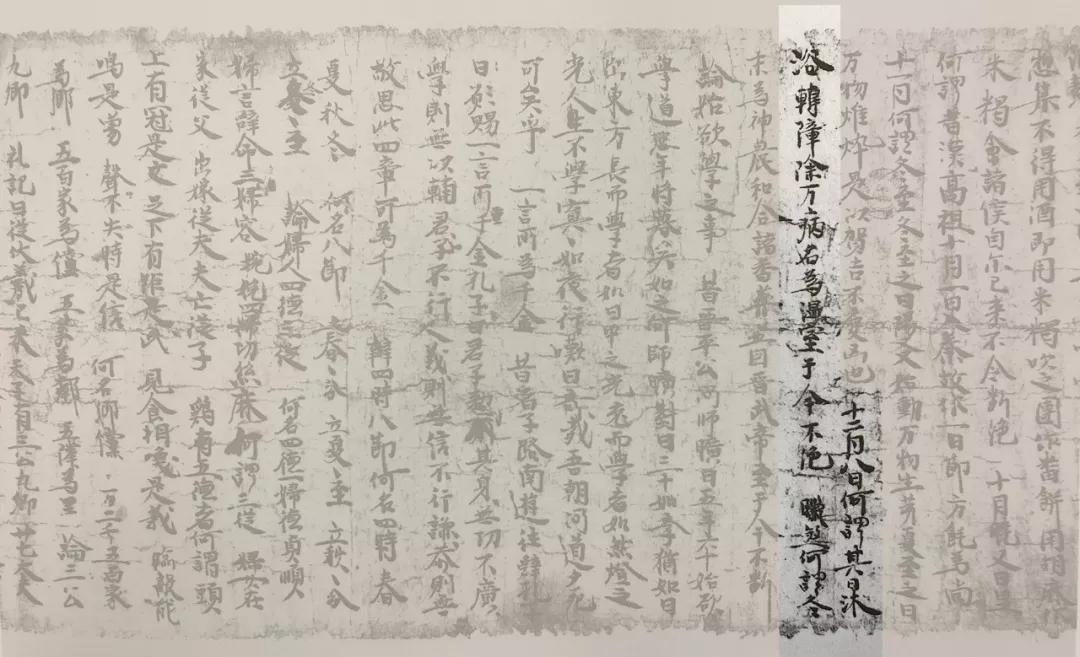 想集不得用酒即用米糉吹之團
米糉會諸侯自尔已来不令断絶 十月一日
何謂昔漢高祖十月一日秦故休一日節方飪為尚
十一月何謂冬至冬至之日陽文始動万物生芳夏至之日
万物雉卵是以賀吉不賀凶也 十二月八日何謂其日沐
浴轉障除万病名為温室于今不絶 臘何謂冬
末為神農和合諸香藥並因晋武帝至于今不断
論始欲學之事 昔晋平公問師曠曰五年三十始欲
學道恐年將暮矣如之何師曠對曰三十如李猶如日
出東方長而學者如日中之光老而學者如然燈之
光人生不學冥〻如夜行嘆曰善哉吾朝問道夕死
可矣乎 一言所為千金 昔者子路南遊往辞孔子
曰願賜一言而千金孔子曰君子懃其身無功不廣
學則無次輔君子不行人義則無信不行謙恭則無
敬思此四章可為千金 辯四時八節何名四時 春
夏秋冬 何名八節 立春春分 立夏夏至 立秋秋分
立冬冬至 論婦人四德三從 何名四德一婦德貞順
婦言辞命三婦容婉娩四婦功絲麻 何謂三從 婦在
家從父 出嫁從夫夫亡從子 鷄有五德者何謂頭
上有冠是文足下有距是武 見食相喚是義 臨敵能
鳴是勇 聲不失時是信 何名鄉黨 万二千五百家
為鄉 五百家為儻 五家為鄰 五隣為里 論三公
九卿 礼記曰從伏羲已来天子有三公九卿廿七大夫